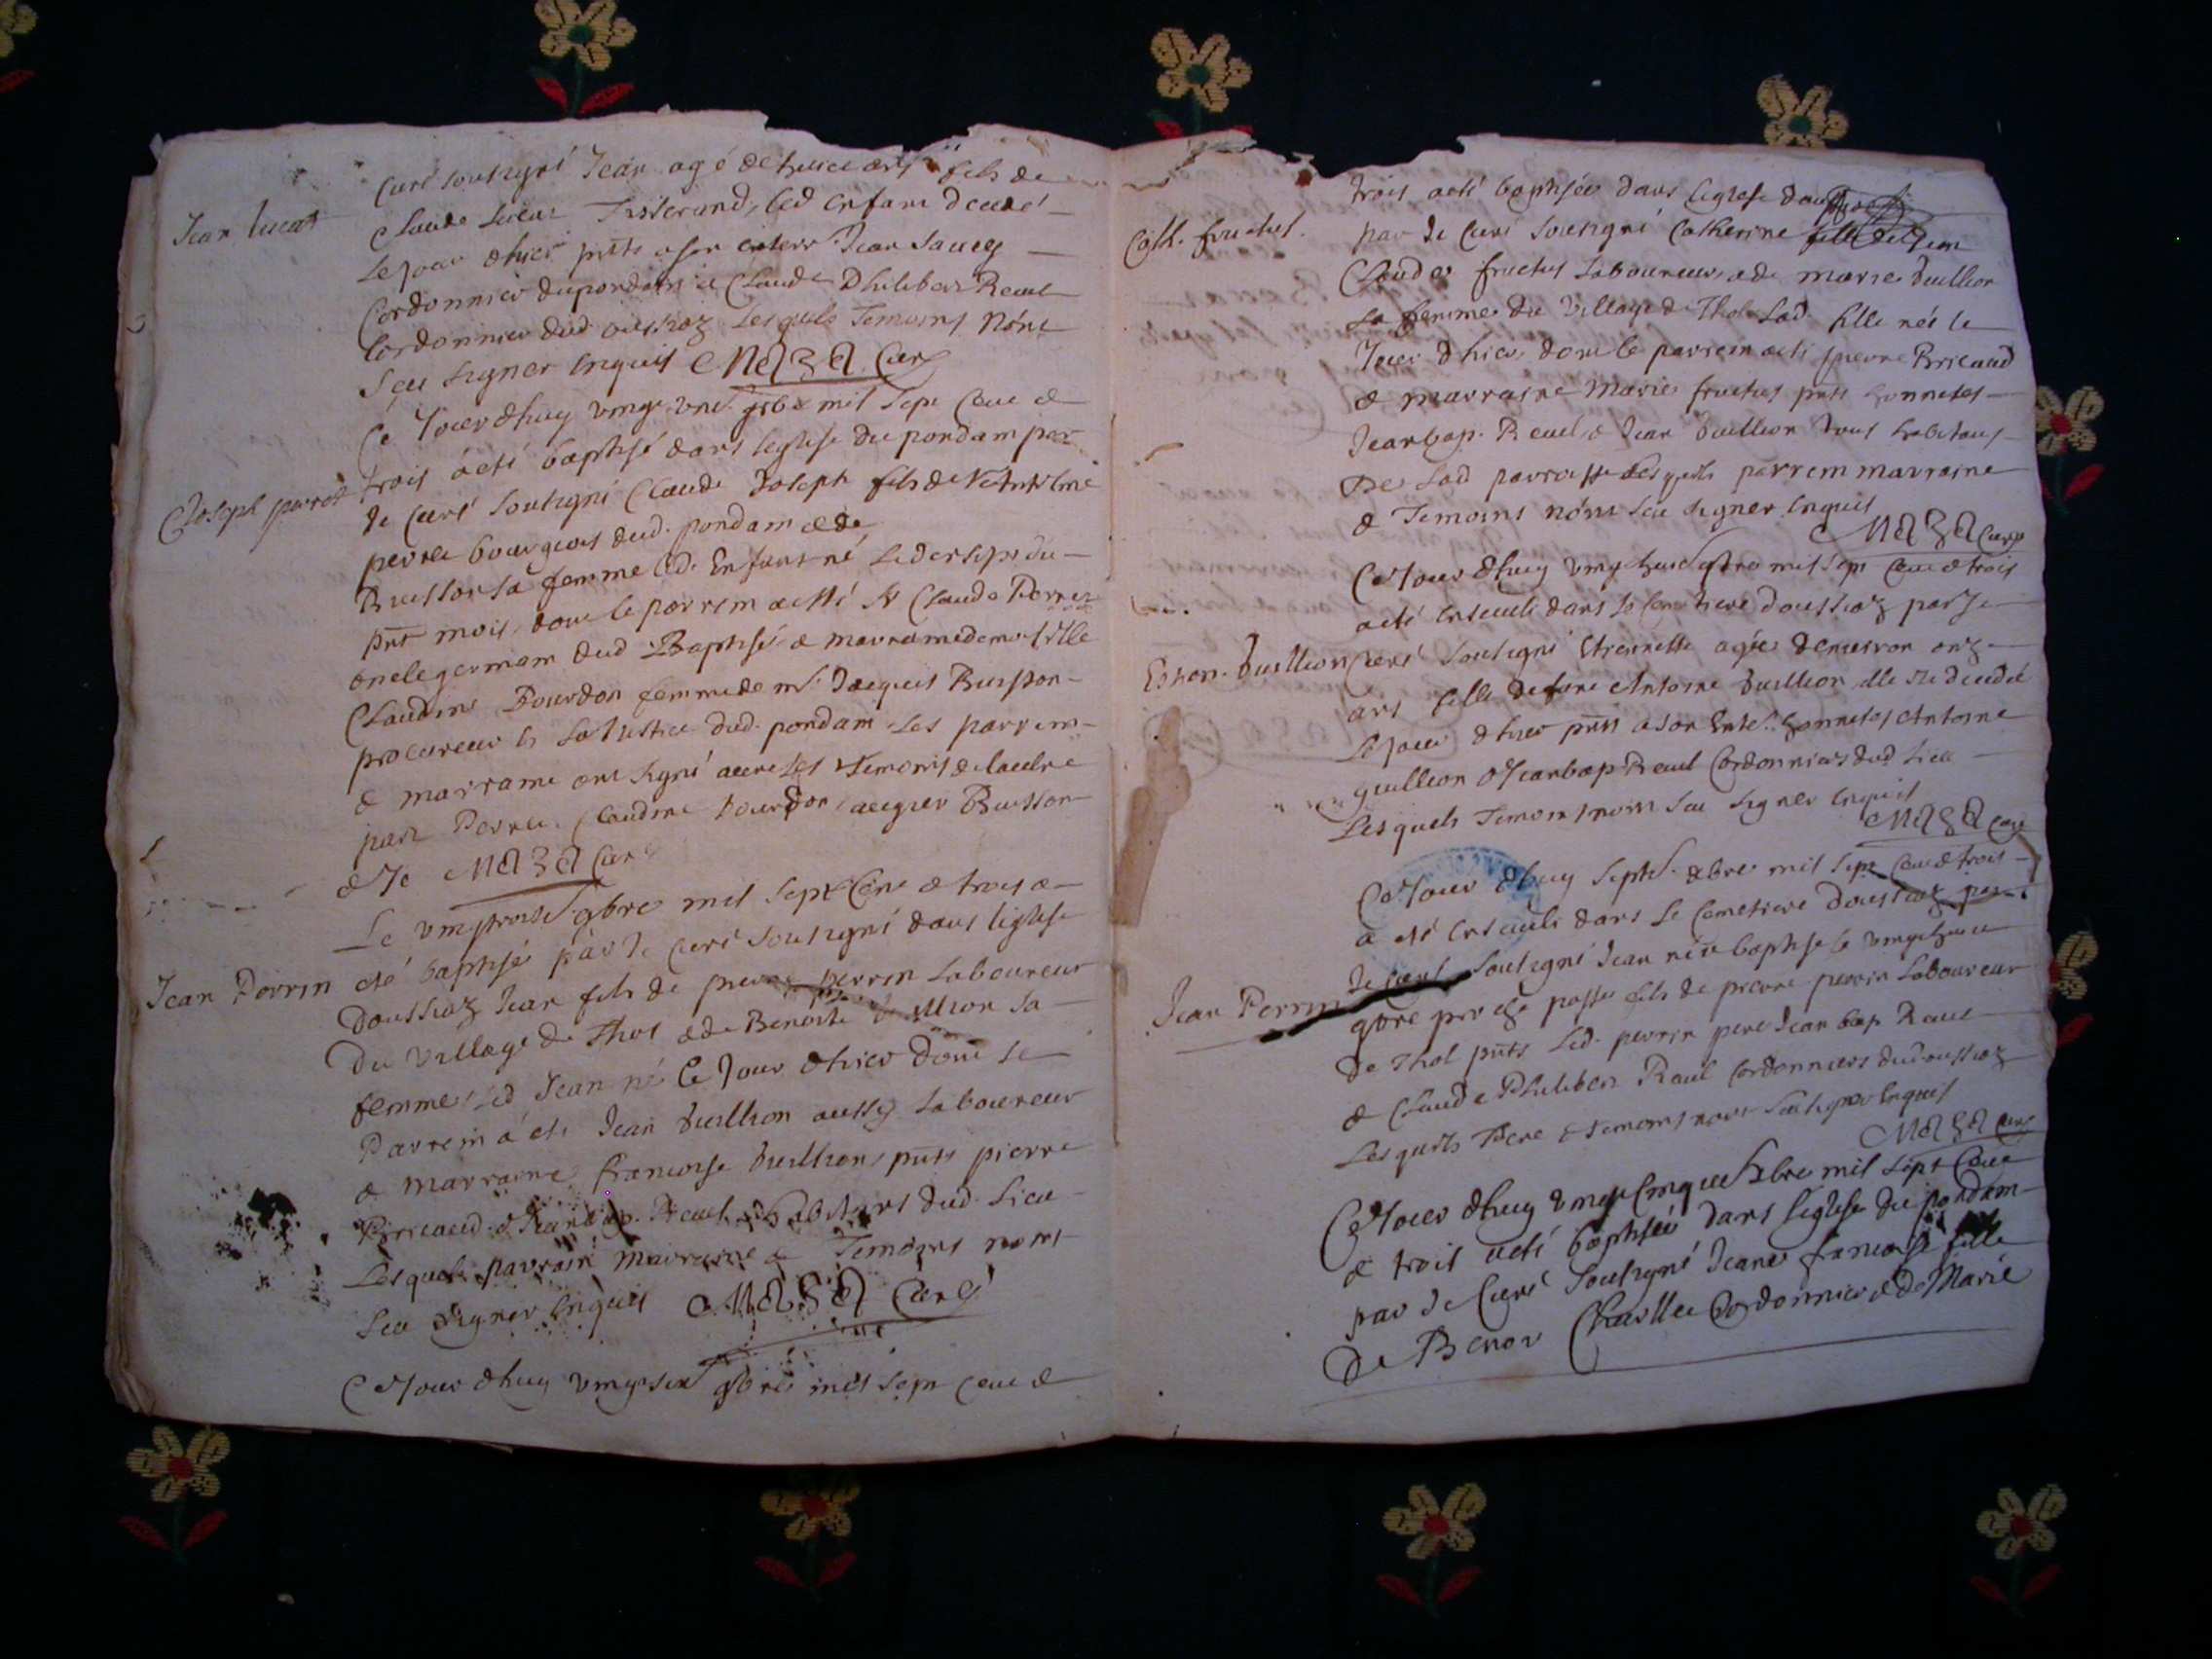 Jean lucat
curé soubsigné Jean agé de huict ans fils de
Claude Tisserand, led enfant decedé
le jour dhier pnts a son enterr. Jean
Cordonnier du pondain & Claude Philiber Reval
Cordonnier dud oussiaz lesquels temoins n'ont
sceu signer enquis Maza Curé
Ce jour dhuy vingt une 9bre mil sept cent &
trois a eté baptisé dans leglise du pondain par
Cl Joseph perret
Je curé soubsigné Claude Joseph fils de
bourgeois dud. pondain & de
Buisson sa femme led. Enfant né le dix sept du
pnt mois, dont le parrein a esté Sr Claude Perret
oncle germain dud Baptisé & marraine demoiselle
Claudine Bourdon femme de mr. Jacques Buisson
procureur en la Justice dud. pondain les parrein
& marraine ont signé avec les temoins de lautre
part Perret. Claudine bourdon, Jacques Buisson
& Je Maza Curé
Le vingt trois 9bre mil sept Cent & trois a
Jean Perrin
eté baptisé par Je curé soubsigné dans leglise
Doussiaz Jean fils de pierre perrin laboureur
Du village de Thol & de Benoite Vullion sa
femme led Jean né le Jour dhier dont le
Parrein a eté Jean Vullion aussy laboureur
& marraine francoise Vullion, pnts pierre
Bricaud & Jean bap. Reval habitans dud. lieu
Lesquels parrain marraine & Temoins n'ont
sceu signer enquis Maza Curé
Ce Jour dhuy vingt six 9bre mil sept cent &
trois a eté baptisée dans leglise
Cath. fructus.
par Je curé soubsigné Catherine fille de Jean
Claude fructus laboureur & de marie Vullion
sa femme du village de Thol lad. fille née le
Jour dhier dont le parrein a eté pierre Bricaud
& marraine Marie fructus pnts honnetes
Jean bap. Reval & Jean Vullion tous habitans
De lad parroisse lesquels parrein marraine
& Temoins n'ont sceu signer enquis
Maza Curé
Ce Jour dhuy vingt huict 9bre mil sept cent & trois
a eté enseveli dans le Cemetiere doussiaz par Je
Eston. Vullion
curé soubsigné Etiennette agée denviron onze
ans fille de feu Antoine Vullion elle decedé
le jour dhier pnts a son Ente. honnetes Antoine
Guillion & Jean bap Reval Cordonniers dud lieu
Lesquels Temoins n'ont sceu signer enquis
Maza Curé
Ce Jour dhuy sept Xbre mil sept cent & trois
a eté enseveli dans le Cemetiere doussiaz par
Je curé soubsigné Jean né & baptisé le vingt trois
Jean Perrin
9bre proche passé fils de pierre perrin laboureur
De Thol pnts led. perrin pere Jean bap Reval
& Claude Philiber Reval Cordonniers dud oussiaz
Lesquels Pere & temoins n'ont sceu signer enquis
Maza Curé
Ce Jour dhuy vingt cinq Xbre mil sept cent
& trois a eté baptisée dans leglise du pondain
par Je Curé soubsigné Jeane francoise fille
De Benoi Cordonnier & de Marie